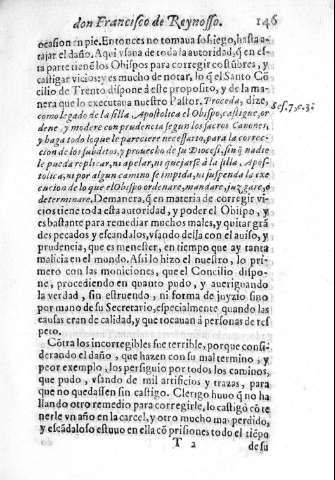 don Francisco de Reynosso. 146
ocasion en pie. Entonces no tomaua sosiego, hasta a-
tajar el daño. Aqui vsaua de toda la autoridad, q̃ en es-
ta parte tienẽ los Obispos para corregir costũbres, y
castigar vicios: y es mucho de notar, lo q̃ el Santo Cõ
cilio de Trento dispone à este proposito, y de la ma-
nera que lo executaua nuestro Pastor. Proceda, dize,
como legado de la silla Apostolica el Obispo, castigue, or
dene, y modere con prudencia segun los sacros Canones,
y haga todo loque le pareciere necessario, para la correc-
cion de los subditos, y prouecho de su Diocesi, sin q̃ nadie
le pueda replicar, ni apelar, ni quejarse à la silla Apos-
tolica, ni por algun camino se impida, ni suspenda la exe
cucion de lo que el Obispo ordenare, mandare, juzgare, o
determinare. Demanera, q̃ en materia de corregir vi-
cios tiene toda esta autoridad, y poder el Obispo, y
es bastante para remediar muchos males, y quitar grã
des pecados y escandalos, vsando dessa con el auiso, y
prudencia, que es menester, en tiempo que ay tanta
malicia en el mondo. Assi lo hizo el nuestro, lo pri-
mero con las moniciones, que el Concilio dispo-
ne, procediendo en quanto pudo, y aueriguando
la verdad, sin estruendo, ni forma de juyzio sino
por mano de su Secretario, especialmente quando las
causas eran de calidad, y que tocauan à personas de res
peto.
Cõtra los incorregibles fue terrible, porque consi-
derando el daño, que hazen con su mal termino, y
peor exemplo, los persiguio por todos los caminos,
que pudo, vsando de mil artificios y trazas, para
que no quedassen sin castigo. Clerigo huuo q̃ no ha
llando otro remedio para corregirle, lo castigó cõ te
nerle vn año en la carcel, y otro mucho mas perdido,
y escãdaloso estuuo en ella cõ prisiones todo el tiẽpo
T 2 de su
Ses. 7. c. 3.